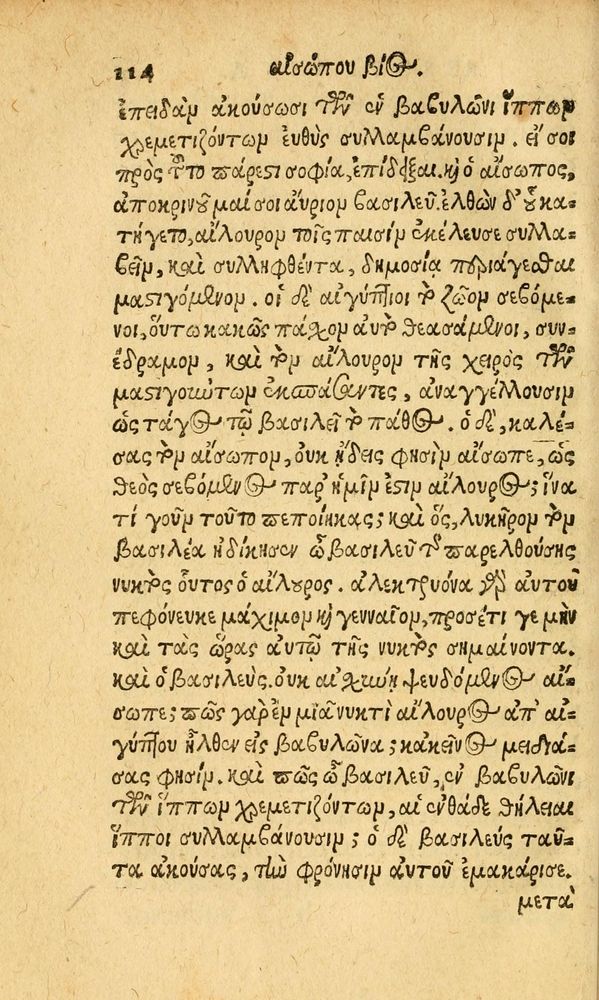 114 αἰσώπου βίος.
ἐπειδὰν ἀκούσωσι τῶν ἐν βαβυλῶνι ἵππων
χρεμετιζόντων εὐθὺς συλλαμβάνουσιν. εἴ σοι
πρὸς τοῦτο πάρεστι σοφία, ἐπίδειξαι. καὶ ὁ αἴσωπος,
ἀποκρινοῦμαί σοι αὔριον βασιλεῦ. ἐλθὼν δ' οὗ κα-
τήγετο, αἴλουρον τοῖς παισὶν ἐκέλευσε συλλα-
βεῖν, καὶ συλληφθέντα, δημοσίᾳ περιάγεσθαι
μαστιγόμενον. οἱ δὲ αἰγύπτιοι τὸ ζῶον σεβόμε-
νοι, οὕτω κακῶς πάσχον αὐτὸ θεασάμενοι, συν-
έδραμον, καὶ τὸν αἴλουρον τῆς χειρὸς τῶν
μαστιγούντων ἐκσπάσαντες, ἀναγγέλλουσιν
ὡς τάχος τῷ βασιλεῖ τὸ πάθος. ὁ δὲ, καλέ-
σας τὸν αἴσωπον, οὐκ ᾔδεις φησὶν αἴσωπε, ὡς
θεὸς σεβόμενος παρ' ἡμῖν ἐστιν αἴλουρος; ἵνα
τί γοῦν τοῦτο πεποίηκας; καὶ ὃς, λυκῆρον τὸν
βασιλέα ἠδίκησεν ὦ βασιλεῦ τῆς παρελθούσης
νυκτὸς οὗτος ὁ αἴλουρος. ἀλεκτρυόνα γὰρ αὐτοῦ
πεφόνευκε μάχιμον καὶ γενναῖον, προσέτι γε μὴν
καὶ τὰς ὥρας αὐτῷ τῆς νυκτὸς σημαίνοντα.
καὶ ὁ βασιλεὺς. οὐκ αἰσχύνῃ ψευδόμενος αἴ-
σωπε; πῶς γὰρ ἐν μιᾷ νυκτὶ αἴλουρος ἀπ' αἰ-
γύπτου ἦλθεν εἰς βαβυλῶνα; κἀκεῖνος μειδιά-
σας φησίν. καὶ πῶς ὦ βασιλεῦ, ἐν βαβυλῶνι
τῶν ἵππων χρεμετιζόντων, αἱ ἐνθάδε θήλειαι
ἵπποι συλλαμβάνουσιν; ὁ δὲ βασιλεὺς ταῦ-
τα ἀκούσας, τὴν φρόνησιν αὐτοῦ ἐμακάρισε.
μετὰ